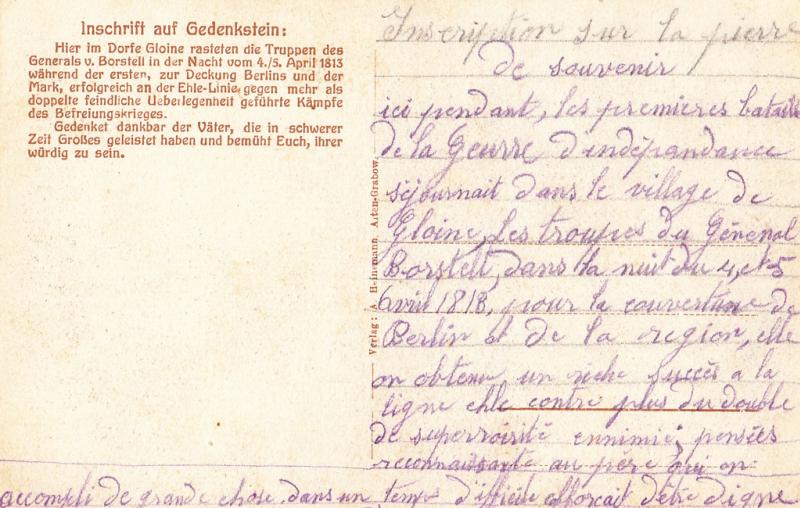 Inschrift auf Gedenkstein:
Hier im Dorfe Gloine rasteten die Truppen des
Generals v. Borstell in der Nacht vom 4./5. April 1813
während der ersten, zur Deckung Berlins und der
Mark, erfolgreich an der Ehle-Linie gegen mehr als
doppelte feindliche Ueberlegenheit geführte Kämpfe
des Befreiungskrieges.
Gedenket dankbar der Väter, die in schwerer
Zeit Großes geleistet haben und bemüht Euch, ihrer
würdig zu sein.
Verlag: A. Heinemann, Alten-Grabow.
Inscription sur la pierre
de souvenir
ici pendant, les premieres batailles
de la Geurre d'indépandance
séjournait dans le village de
Gloine, les troupes du Géneral
Borstell, dans la nuit du 4 et 5
Avril 1813, pour la couverture de
Berlin et de la region, elle
on obtenu un riche succès a la
ligne ehle contre plus du double
de superroisité ennimie; pensées
reconnaissante au père qui on
accompli de grande chose dans un temps difficile efforcait d'être digne